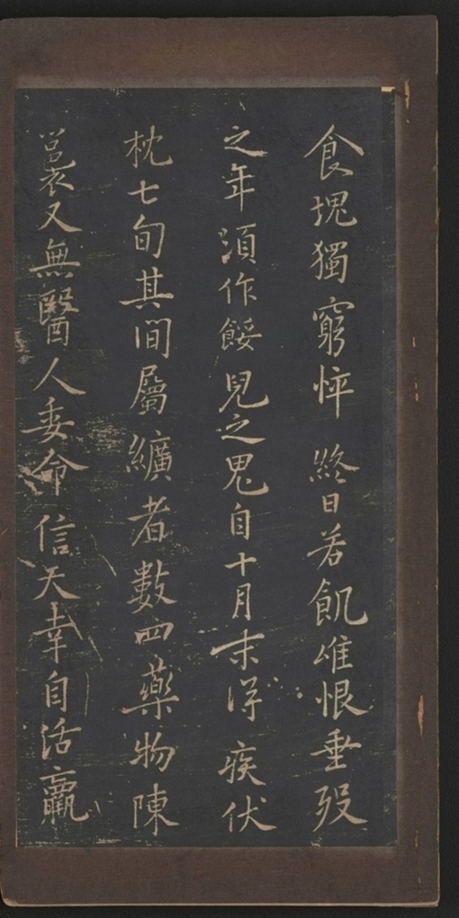 食塊獨窮悴終日苦飢唯恨垂歿
之年須作餒兒之鬼自十月末得疾伏
枕七旬其間屬纊者數四藥物陳
裏又無醫人委命信天幸自活羸